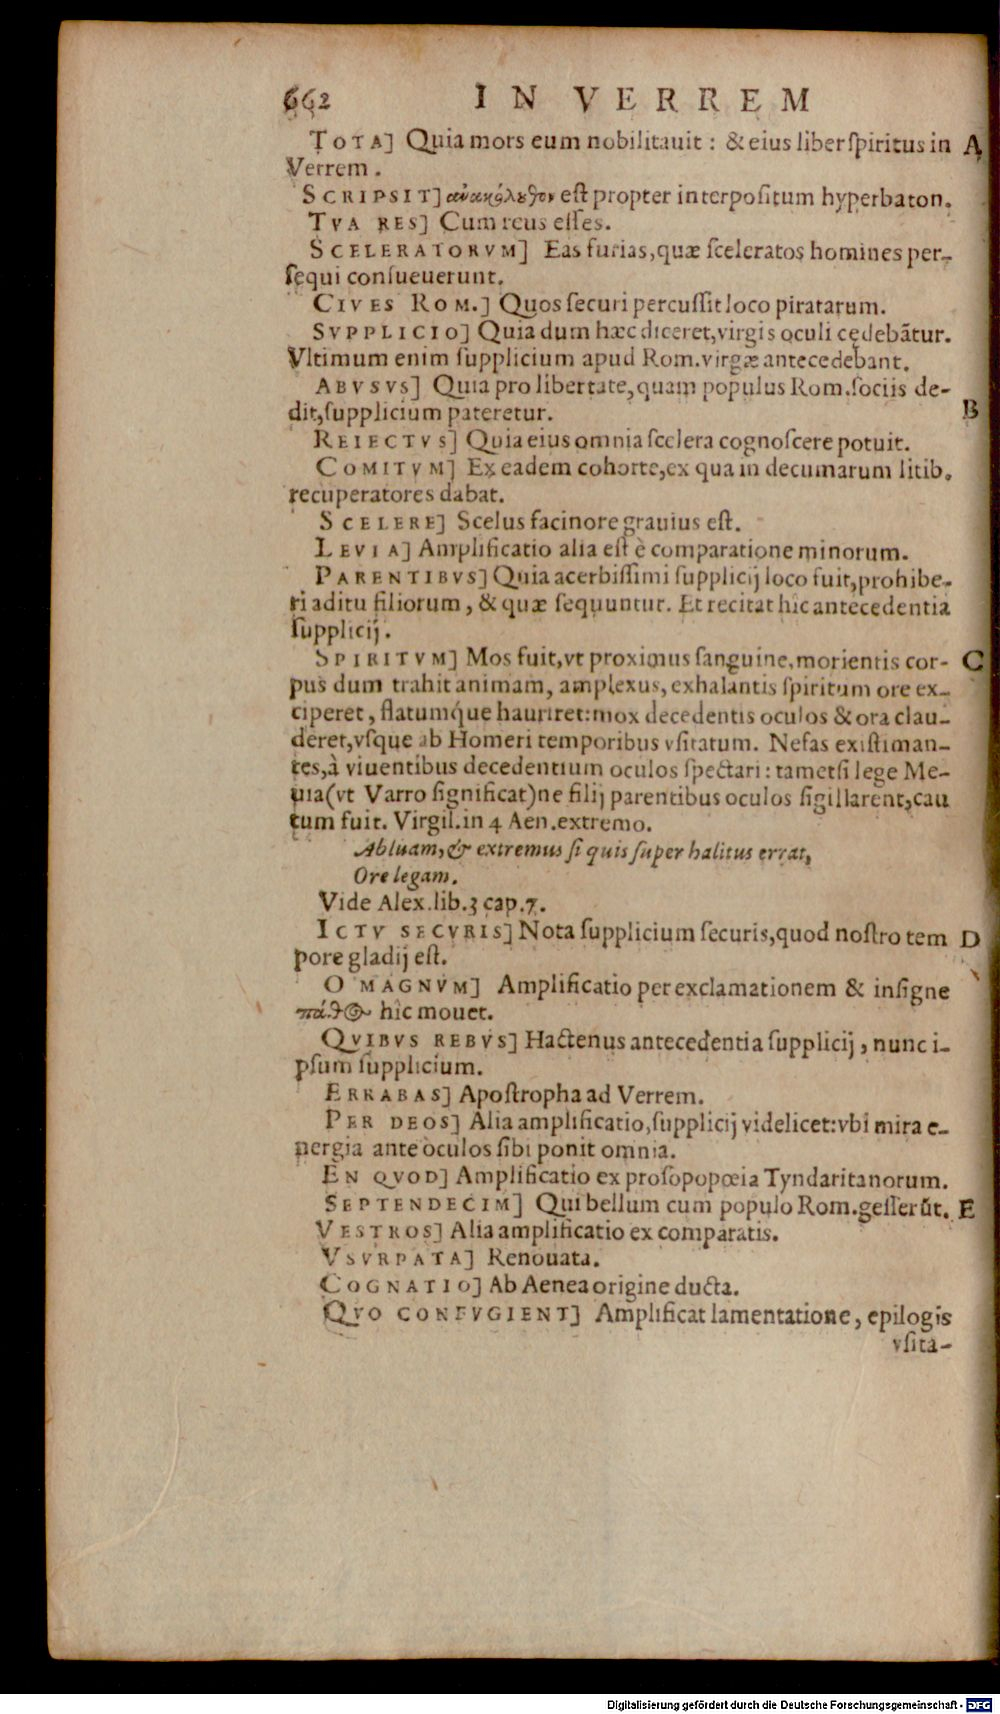 662 IN VERREM
TOTA] Quia mors eum nobilitauit : & eius liber ſpiritus in A
Verrem .
SCRIPSIT] ἀνακόλουθον eſt propter interpoſitum hyperbaton.
TVA RES] Cum reus eſſes.
SCELERATORVM] Eas furias, quæ ſceleratos homines per-
ſequi conſueuerunt.
CIVES ROM.] Quos ſecuri percuſſit loco piratarum.
SVPPLICIO] Quia dum hæc diceret, virgis oculi cędebãtur.
Vltimum enim ſupplicium apud Rom. virgæ antecedebant.
ABVSVS] Quia pro libertate, quam populus Rom. ſociis de-
dit, ſupplicium pateretur. B
REIECTVS] Quia eius omnia ſcelera cognoſcere potuit.
COMITVM] Ex eadem cohorte, ex qua in decumarum litib.
recuperatores dabat.
SCELERE] Scelus facinore grauius eſt.
LEVIA] Amplificatio alia eſt è comparatione minorum.
PARENTIBVS] Quia acerbiſſimi ſupplicij loco fuit, prohibe-
ri aditu filiorum, & quæ ſequuntur. Et recitat hic antecedentia
ſupplicij.
SPIRITVM] Mos fuit, vt proximus ſanguine, morientis cor- C
pus dum trahit animam, amplexus, exhalantis ſpiritum ore ex-
ciperet, flatumq́ue hauriret: mox decedentis oculos & ora clau-
deret, vſque ab Homeri temporibus vſitatum. Nefas exiſtiman-
tes, à viuentibus decedentium oculos ſpectari: tametſi lege Me-
uia (vt Varro ſignificat) ne filij parentibus oculos ſigillarent, cau
tum fuit. Virgil. in 4 Aen. extremo.
Abluam, & extremus ſi quis ſuper halitus errat,
Ore legam.
Vide Alex. lib. 3 cap. 7.
ICTV SECVRIS] Nota ſupplicium ſecuris, quod noſtro tem D
pore gladij eſt.
O MAGNVM] Amplificatio per exclamationem & inſigne
πάθος hic mouet.
QVIBVS REBVS] Hactenus antecedentia ſupplicij, nunc i-
pſum ſupplicium.
ERRABAS] Apoſtropha ad Verrem.
PER DEOS] Alia amplificatio, ſupplicij videlicet: vbi mira e-
nergia ante oculos ſibi ponit omnia.
EN QVOD] Amplificatio ex proſopopœia Tyndaritanorum.
SEPTENDECIM] Qui bellum cum populo Rom. geſſerũt. E
VESTROS] Alia amplificatio ex comparatis.
VSVRPATA] Renouata.
COGNATIO] Ab Aenea origine ducta.
QVO CONFVGIENT] Amplificat lamentatione, epilogis
vſita-
Digitalisierung gefördert durch die Deutsche Forschungsgemeinschaft - DFG